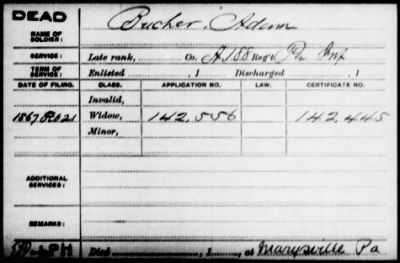 DEAD
NAME OF SOLDIER: Bucher, Adam
SERVICE: Late rank, Co. A 188 Reg't Pa Inf
TERM OF SERVICE: Enlisted , 1 Discharged , 1
DATE OF FILING. CLASS. APPLICATION NO. LAW. CERTIFICATE NO.
Invalid,
1867 21 Widow, 142,556 142,445
Minor,
ADDITIONAL SERVICES:
REMARKS:
PH Died , 1 , at Marysville Pa